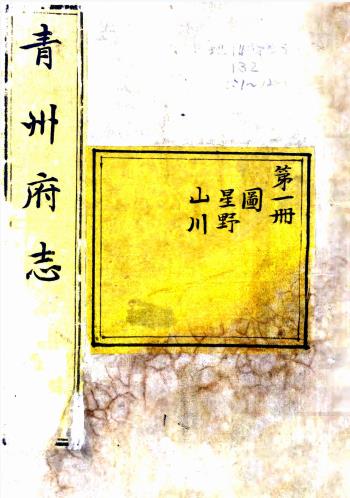 青州府志
第一冊
圖
星野
山川
132